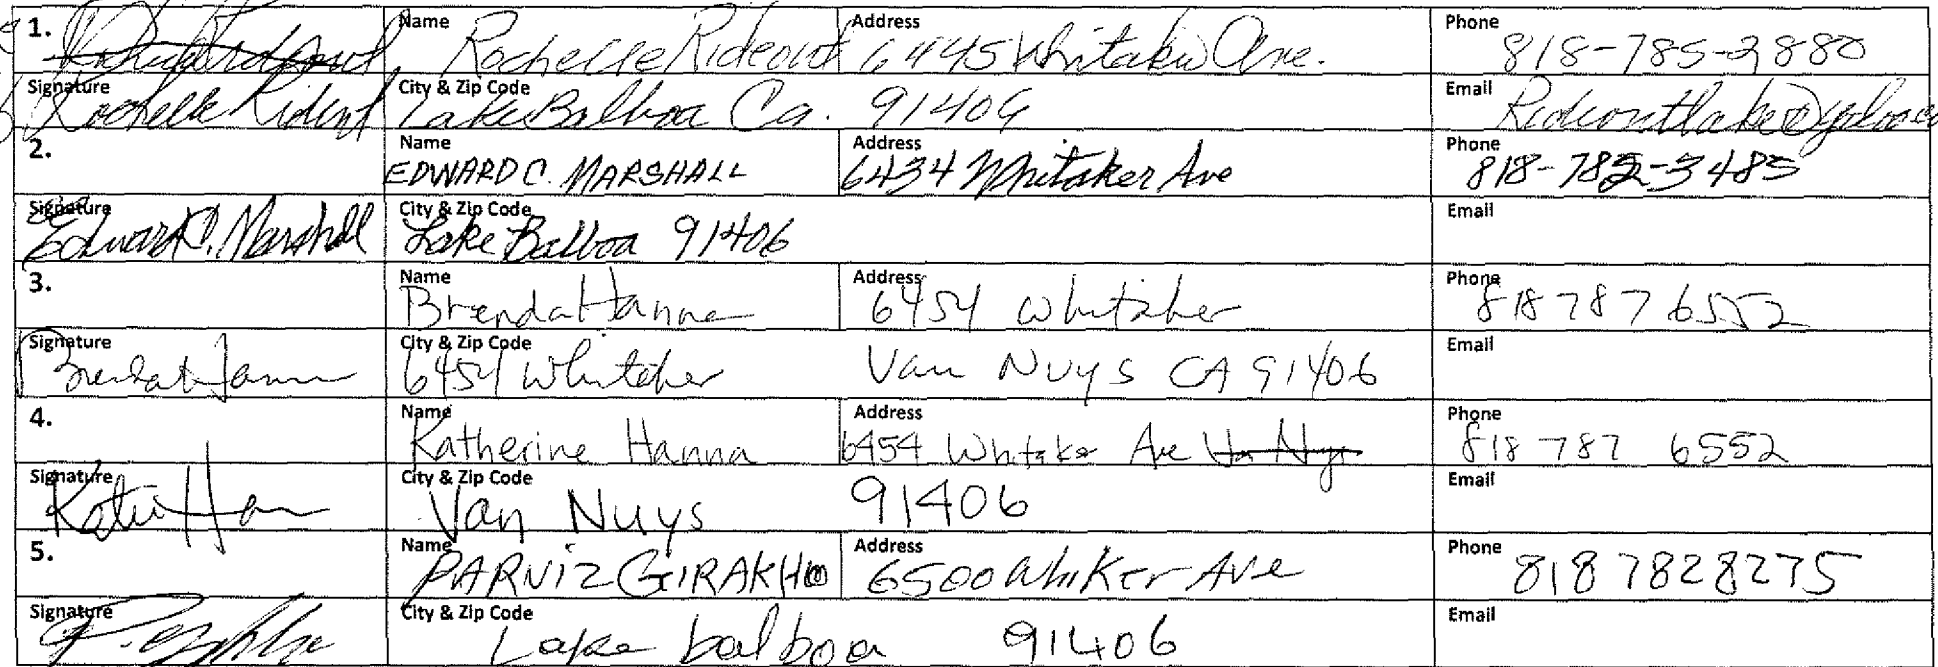 1. Name Rochelle Rideout Address 6445 Whitaker Ave. Phone 818-785-2880
Signature Rochelle Rideout City & Zip Code Lake Balboa Ca. 91406 Email
2. Name EDWARD C. MARSHALL Address 6434 Whitaker Ave Phone 818-782-3485
Signature Edward C. Marshall City & Zip Code Lake Balboa 91406 Email
3. Name Brenda Hanna Address 6454 Whitaker Phone 818 787 6552
Signature Brenda Hanna City & Zip Code 6454 Whitaker Van Nuys CA 91406 Email
4. Name Katherine Hanna Address 6454 Whitaker Ave Phone 818 787 6552
Signature City & Zip Code Van Nuys 91406 Email
5. Name PARVIZ Address 6500 Whiker Ave Phone 818 7828275
Signature City & Zip Code Lake balboa 91406 Email